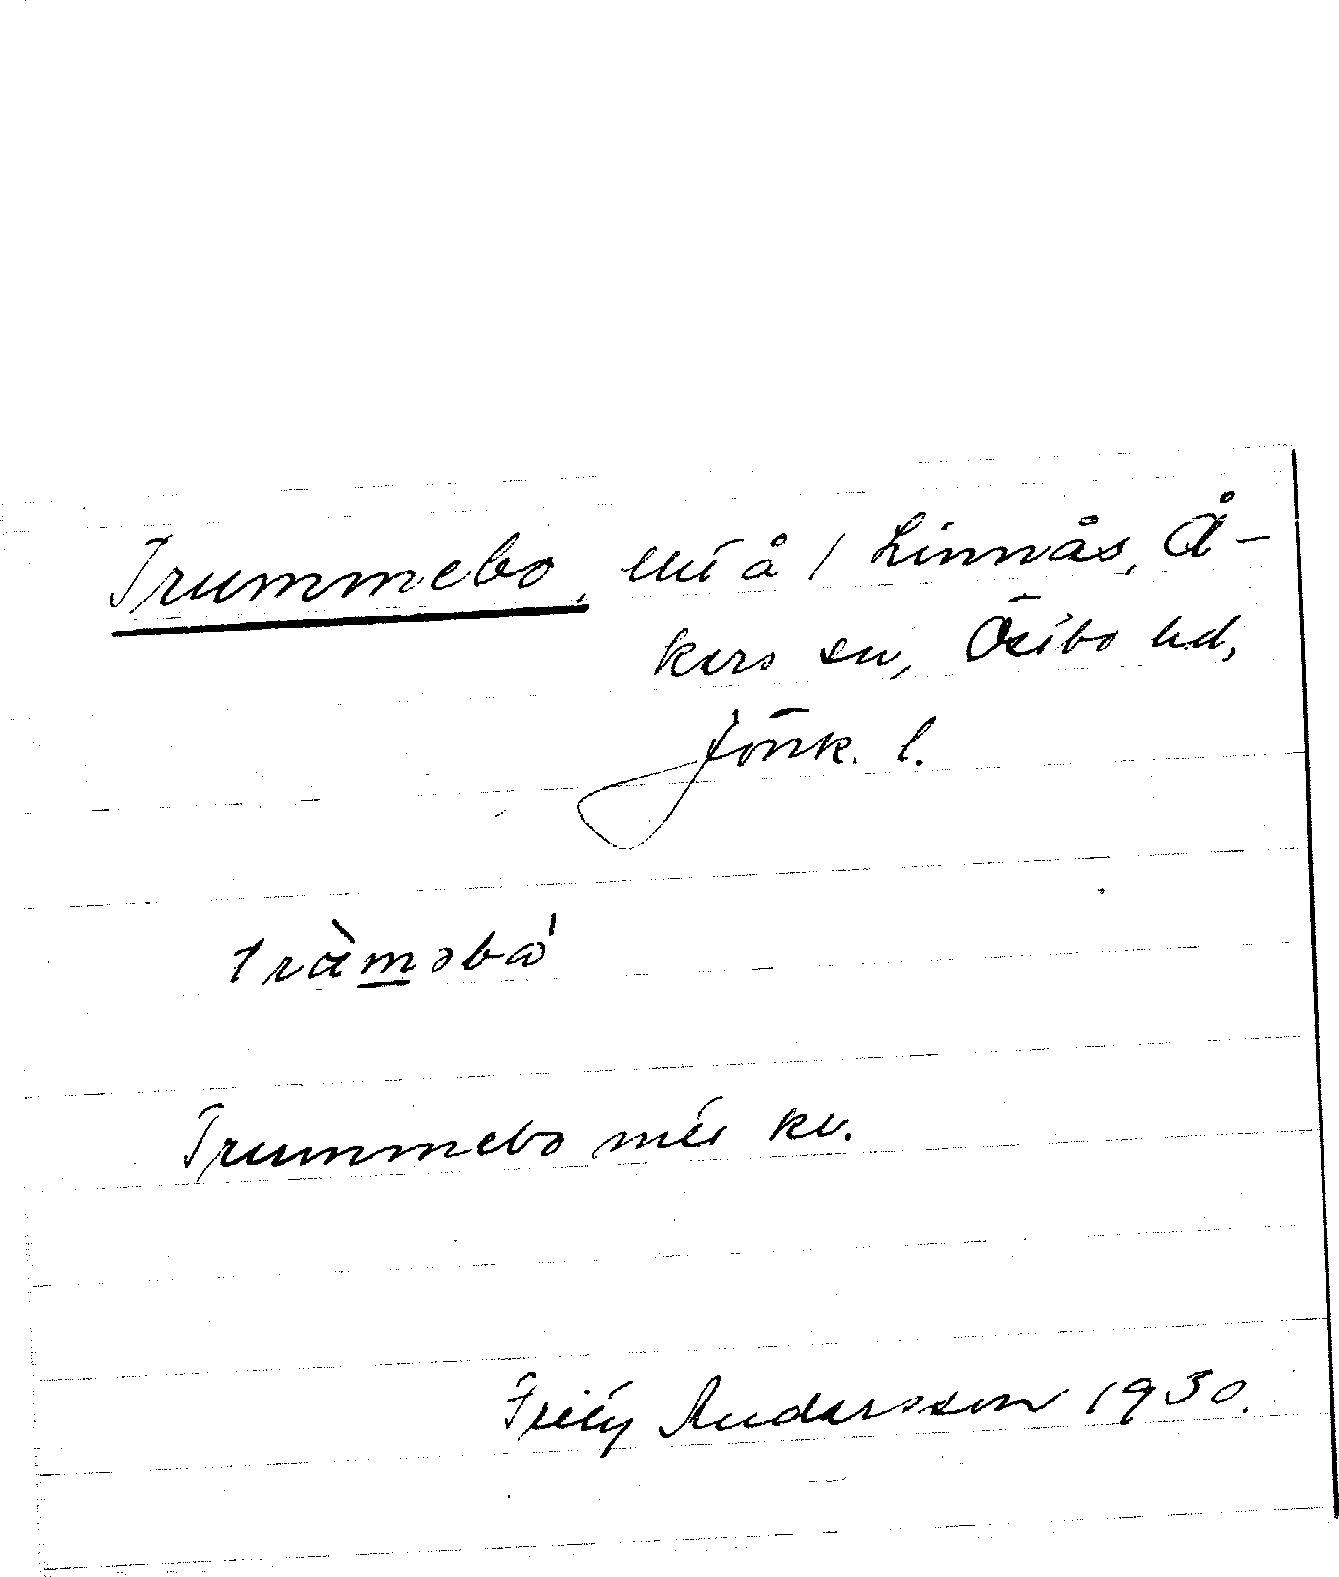 Trummebo, lht å / Linnås, Å-
kers sn, Östbo hd,
Jönk. l.
tràməbó
Trummebo mit kv.
Fritz Andersson 1930.